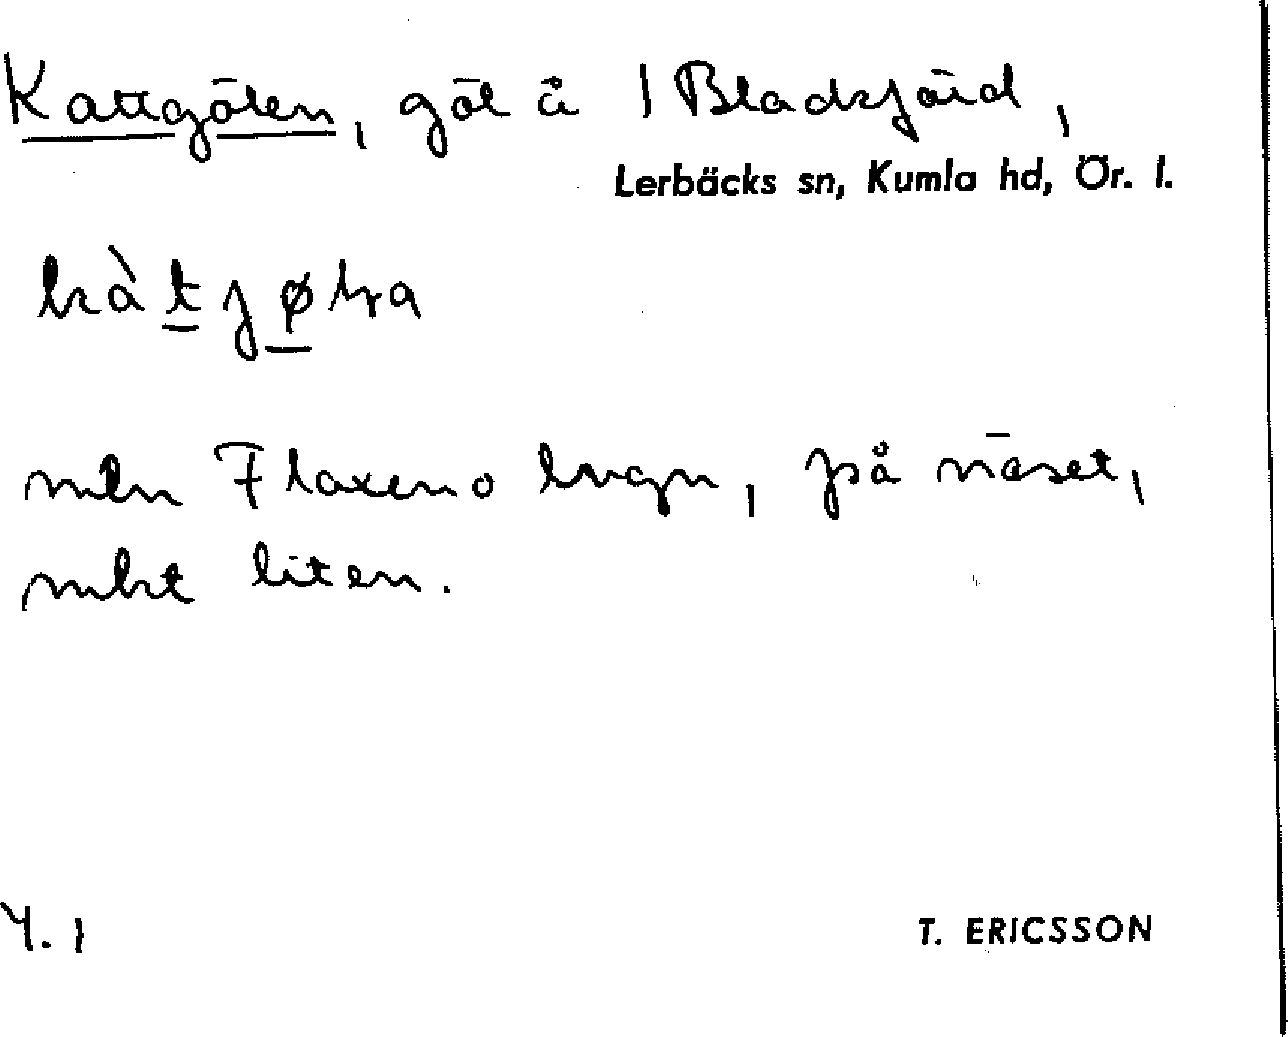 Kattgölen, göl å 1 Bladsjöid,
Lerbäcks sn, Kumla hd, Ör. l.
kàtjøka
mln Flaxen o lugn, på näset,
mkt liten.
4. 1
T. ERICSSON